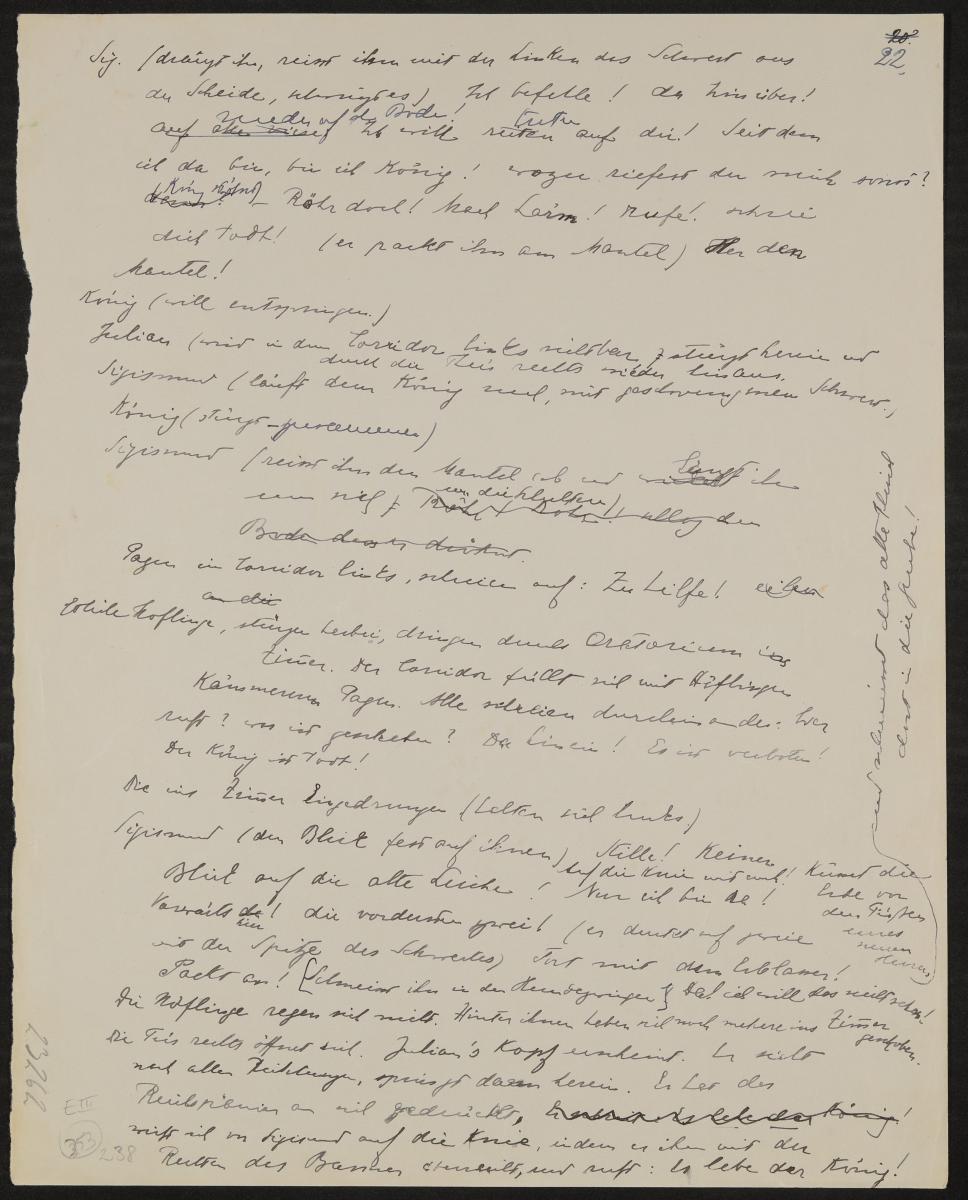 20?
22.
Sig. (drängt ihn, reisst ihm mit der Linken das Schwert aus
der Scheide, schwingt es) Ich befehle! da hinüber!
nieder auf den Boden! treten
auf alle viere! Ich will treten auf dir! Seit dem
ich da bin, bin ich König! wozu riefest du mich sonst?
König stöhnt)
– Röhr doch! Mach Lärm! Rufe! schrei
dich todt! (er packt ihn am Mantel) Her den
Mantel!
König (will entspringen.)
Julian (wird in dem Corridor links sichtbar, stürzt herein und
durch die Thür rechts wieder hinaus.
Sigismund (läuft dem König nach, mit geschwungenem Schwert.)
König (stürzt zusammen)
Sigismund (reisst ihm den Mantel ab und hängt ihn
um die Schultern)
um sich
Boden
Pagen im Corridor links, schreien auf: Zu Hilfe!
an die
Etliche Höflinge, stürzen herbei, dringen durchs Oratorium ins
Zimer. Der Corridor füllt sich mit Höflingen
Kämmerern Pagen. Alle schreien durcheinander: Wer
ruft? was ist geschehen? Da hinein! Es ist verboten!
Der König ist todt!
Die ins Zimer Eingedrungen (halten sich links)
Sigismund (den Blick fest auf ihnen) Stille! Keinen
Blick auf die alte Leiche! Nur ich bin da!
Auf die Knie mit euch! Küsset die Erde vor den Füssen eures neuen Herrn
Vorwärts da! die vordersten zwei! (er deutet auf zweie
hin
mit der Spitze des Schwertes) Fort mit dem Leichnam!
Packt an! [Schmeisst ihn in den Hundezwinger] Da! ich will das nicht sehen!
und schmeisst das alte Fleisch
dort in die Grube!
Die Höflinge regen sich nicht. Hinter ihnen haben sich noch mehere ins Zimer
geschoben.
Die Thür rechts öffnet sich. Julian's Kopf erscheint. Er sieht
nach allen Richtungen, springt dann herein. Er hat das
Reichsbanner an sich gedrückt, Es lebe der König!
wirft sich vor Sigismund auf die Knie, indem er ihm mit der
Rechten das Banner überreicht, und ruft: Es lebe der König!
E III
238
23762